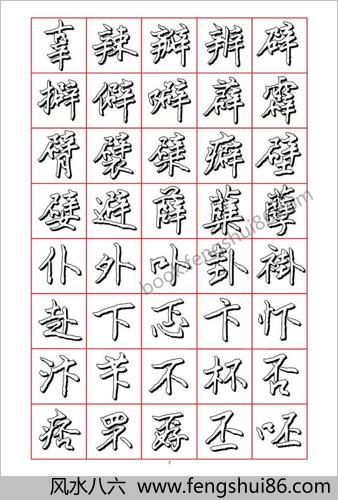 辣 瓣 辨 辟
擗 僻 噼 薜 霹
臂 襞 檗 癖 壁
嬖 避 薛 蘖 孽
仆 外 卟 卦 褂
赴 下 忑 卞 忭
汴 苄 不 杯 否
痞 罘 孬 丕 呸
2
book.fengshui86.com
风水八六-www.fengshui86.com